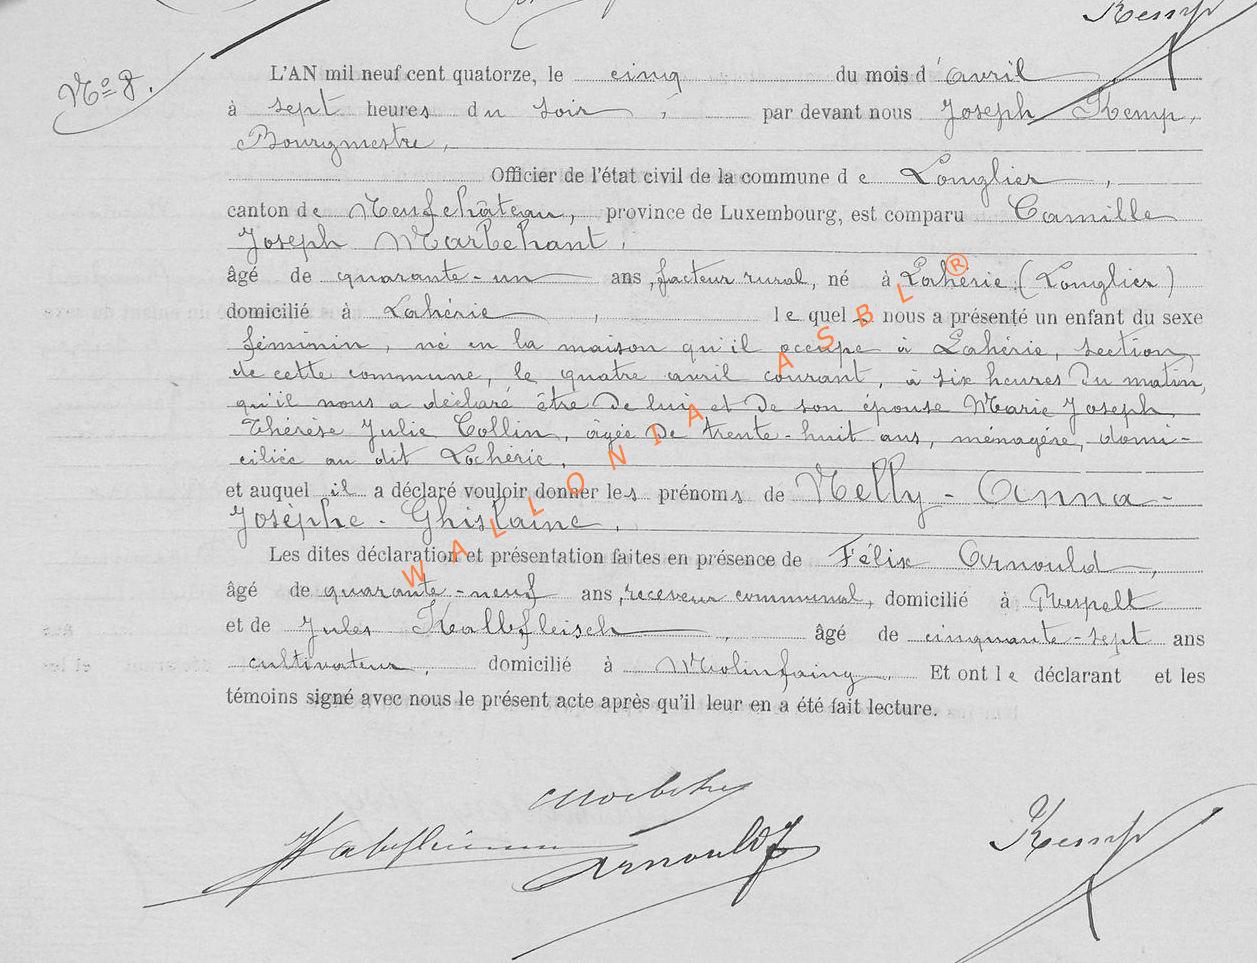 Kemp
No 8.
L'AN mil neuf cent quatorze, le cinq du mois d'avril
à sept heures du soir, par devant nous Joseph Kemp,
Bourgmestre,
Officier de l'état civil de la commune de Longlier,
canton de Neufchâteau, province de Luxembourg, est comparu Camille
Joseph Marbehant,
âgé de quarante-un ans, facteur rural, né à Lahérie (Longlier)
domicilié à Lahérie, lequel nous a présenté un enfant du sexe
féminin, né en la maison qu'il occupe à Lahérie, section
de cette commune, le quatre avril courant, à six heures du matin,
qu'il nous a déclaré être de lui et de son épouse Marie Joseph
Thérèse Julie Collin, âgée de trente-huit ans, ménagère, domi-
ciliée au dit Laherie,
et auquel il a déclaré vouloir donner les prénoms de Nelly-Anna-
Josèphe-Ghislaine.
Les dites déclaration et présentation faites en présence de Félix Arnould,
âgé de quarante-neuf ans, receveur communal, domicilié à Respelt
et de Jules Kalbfleisch, âgé de cinquante-sept ans
cultivateur, domicilié à Molinfaing. Et ont le déclarant et les
témoins signé avec nous le présent acte après qu'il leur en a été fait lecture.
Arnould
Kemp
WALLONIA ASBL ®